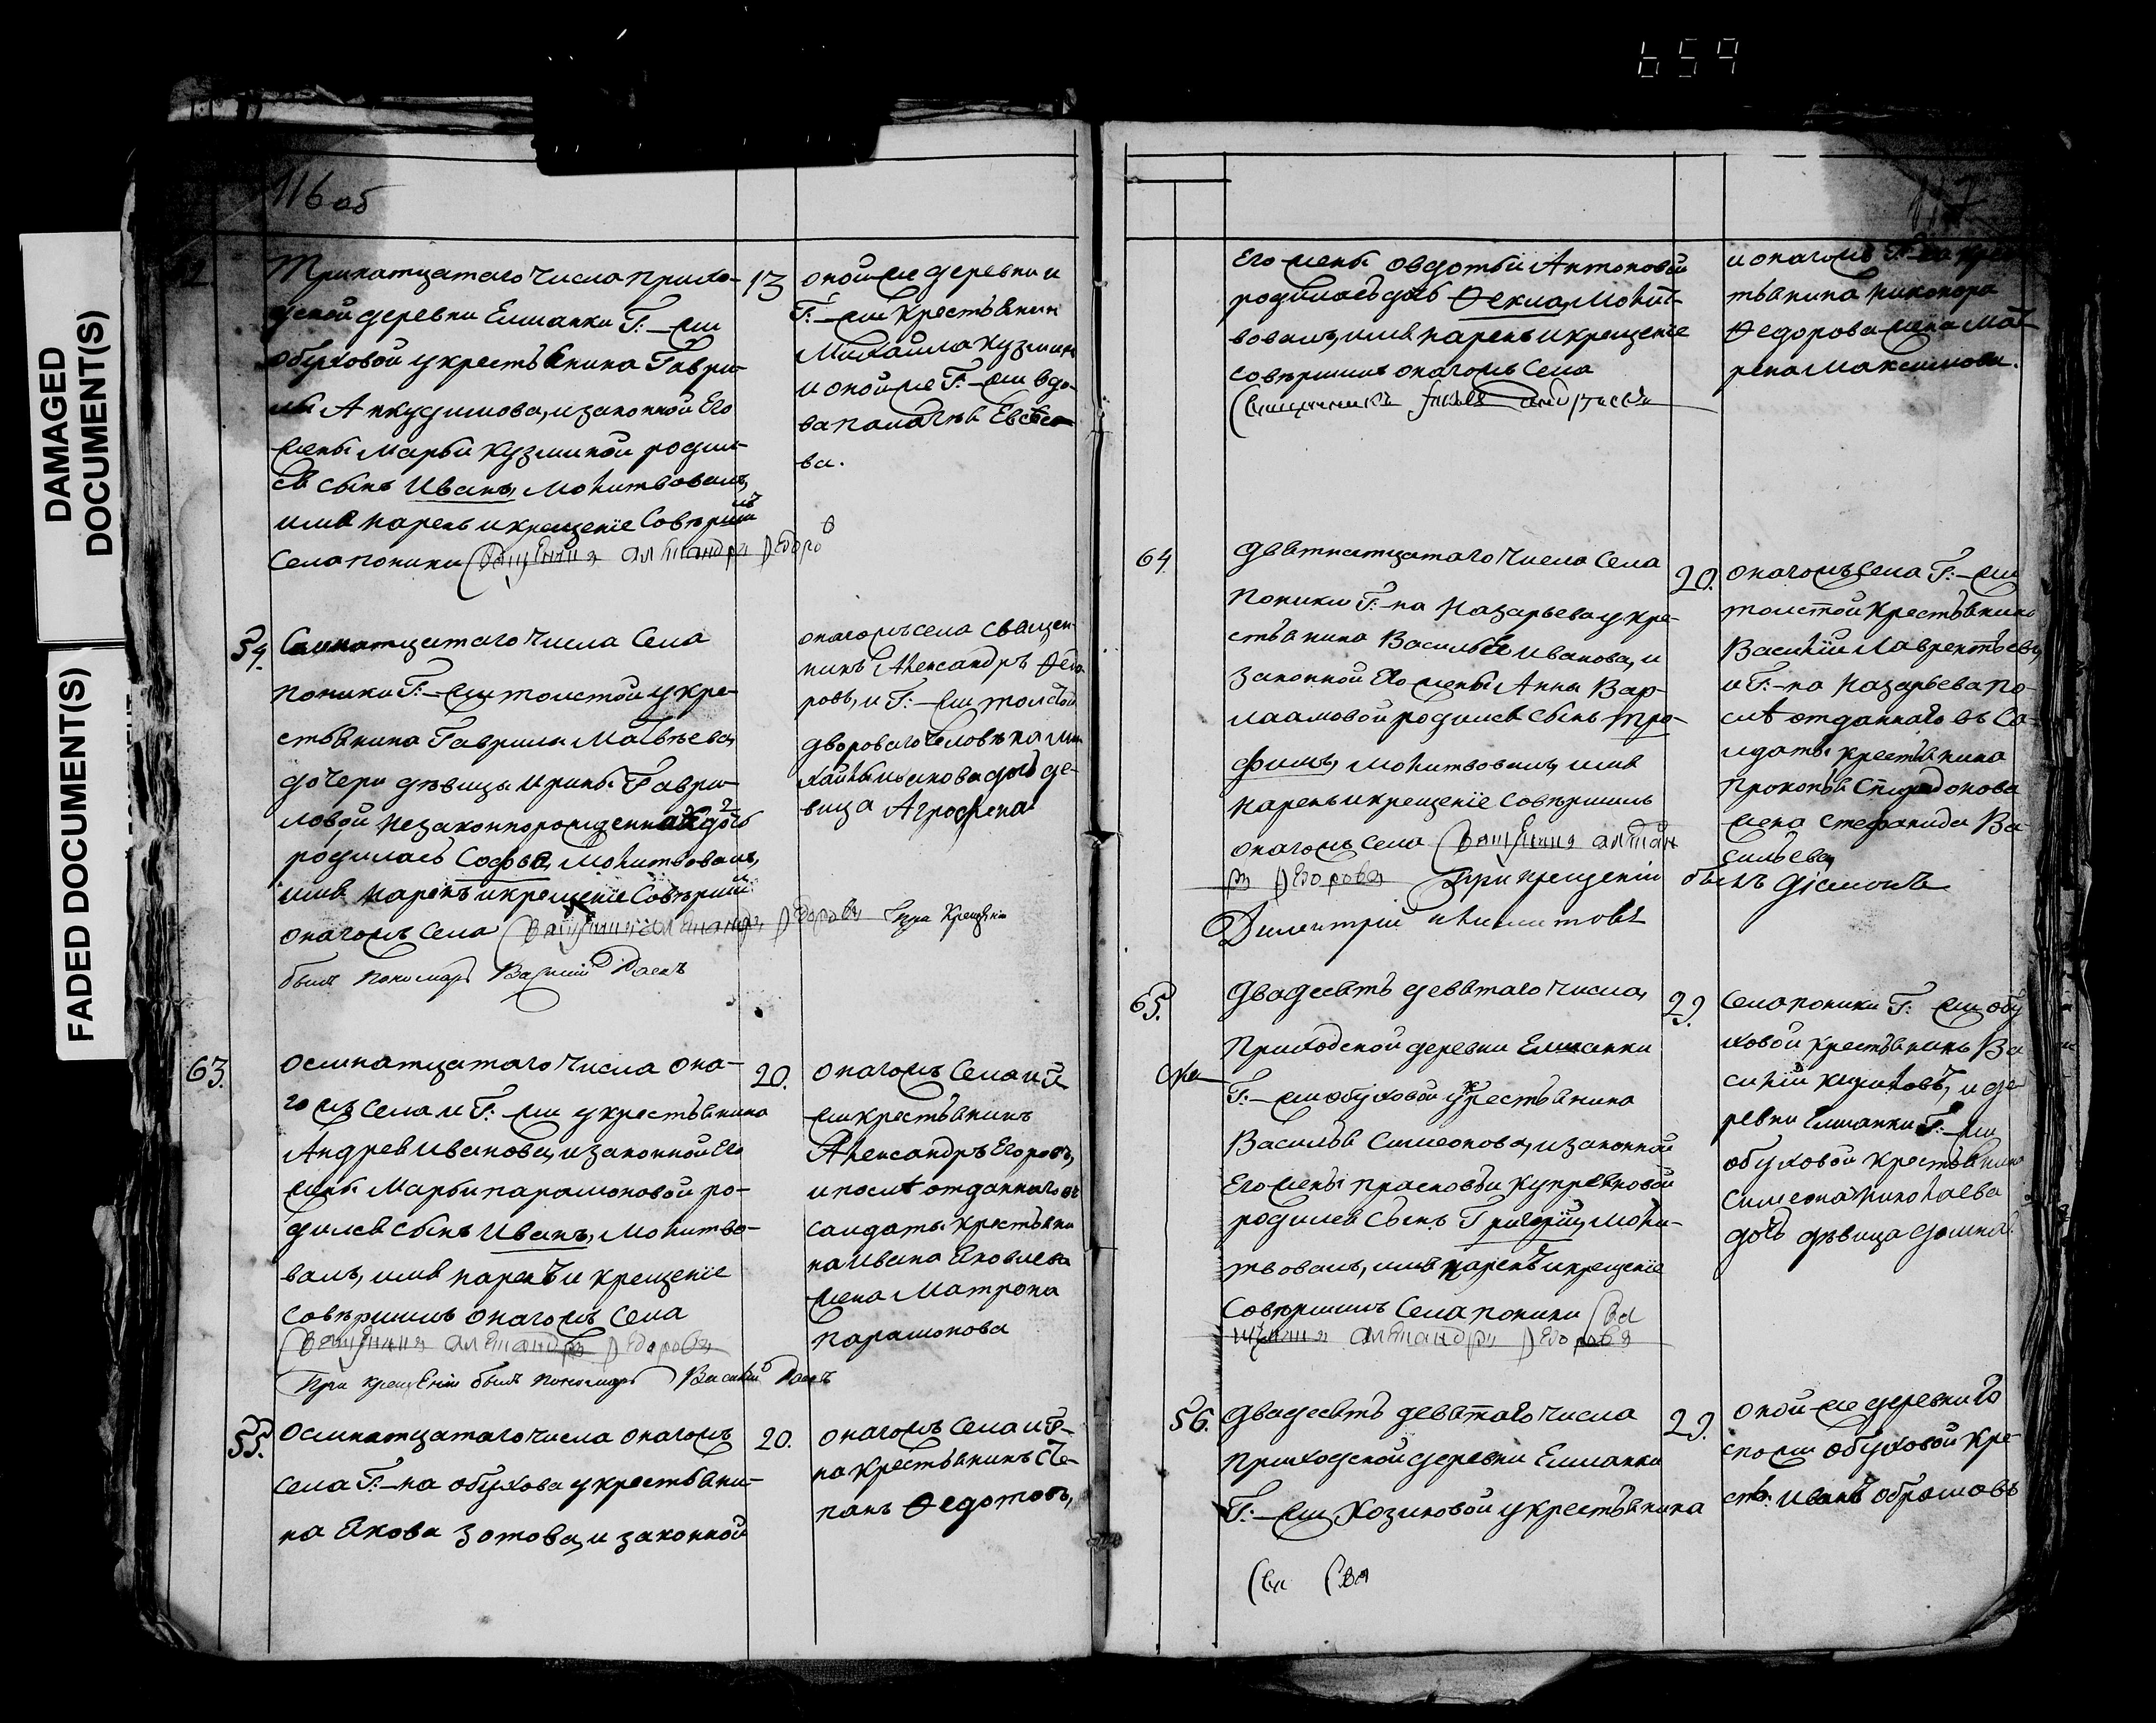 659
DAMAGED
DOCUMENT(S)
FADED DOCUMENT(S)
116 об
Тринатцатаго числа прихо-
дской деревни Елшанки Г:-жи
обуховой у крестьянина Гаври-
лы Анкудинова, и законной Его
жены Марьи Кузминой родил-
ся сынъ Иванъ, молитвовалъ,
имя нареч и крещенїе совѣршилъ
села поники Священникъ Александръ Федоровъ
13
оной же деревни и
Г:-жи крестьянин
Михайла Кузмин
и оной же Г:-жи вдо-
ва
ва.
54.
Семнатцатаго числа Села
поники Г:-жи толстой у кре-
стьянина Гаврилы Матвѣева,
дочери дѣвицы Ирины Гаври-
ловой незаконнорожденная дочь
родилась Софья, молитвовалъ,
имя наречъ и крещенїе совѣршилъ
онагожъ села Священникъ Александръ Федоровъ при крещенїи
былъ пономарь Василий
онагожъ села священ-
никъ Александръ Ѳедо-
ровъ, и Г:-жи толстой
двороваго человѣка Ми-
хайлы дочь де-
вица Агрофена
63.
Осмнатцатаго числа она-
гожъ села и Г:-жи у крестьянина
Андрея Иванова, и законной Его
жены Марьи парамоновой ро-
дился сынъ Иванъ, молитво-
валъ, имя наречъ и крещенїе
совѣршилъ онагожъ села
Священникъ Александръ Федоровъ
При крещенїи былъ пономарь Василий
20.
онагожъ села и Г-
жи крестьянинъ
Александръ Егоровъ,
и послѣ отданнаго въ
салдаты крестьяни
на Ивана Яковлева
жена Матрона
парамонова
55.
Осмнатцатаго числа онагожъ
села Г:-на обухова у крестьяни-
на Якова Зотова, и законной
20.
онагожъ села и Г-
на крестьянинъ Сте-
панъ Ѳедотовъ,
117
Его жены Овдотьи Антоновой
родилась дочь Ѳекла, молит-
вовалъ, имя нареч и крещенїе
совѣршилъ онагожъ села
Священникъ Андреевъ
и онагожъ Г-на крес
тьянина Никонора
Ѳедорова жена Мат
рена Максимова.
64.
Девятнатцатаго числа села
Поники Г:-на Назарьева у кре-
стьянина Василья Иванова, и
законной Его жены Анны Вар-
лаамовой родился сынъ Тро-
фимъ, молитвовалъ, имя
наречъ и крещенїе совѣршилъ
онагожъ села Священникъ Александ
ръ Федоровъ При крещенїи былъ дїаконъ
Димитрїй
20.
онагожъ села Г:-жи
толстой крестьянинъ
Василїй Лаврентьевъ,
и Г:-на Назарьева по-
слѣ отданнаго въ са-
лдаты крестьянина
Прокопья Спиридонова
жена Стефанида Ва
сильева,
65.
Двадесять девятаго числа,
Приходской деревни Елшанки
Г:-жи обуховой у крестьянина
Василья Симеонова, и законной
Его жены прасковьи Куприяновой
родился сынъ Григорїй, моли-
твовалъ, имя наречъ и крещенїе
совѣршилъ Села поники Свя
щенникъ Александръ Федоровъ
29.
Села поники Г: жи обу
ховой крестьянинъ Ва
силїй, и де-
ревни Елшанки Г:-жи
обуховой крестьянина
Симеона Николаева
дочь дѣвица Домна.
56.
Двадесять девятаго числа
Приходской деревни Елшанки
Г:-жи Козиковой у крестьянина
29.
оной-же деревни го
спожи обуховой кре-
сть: Иванъ
Свя Свя